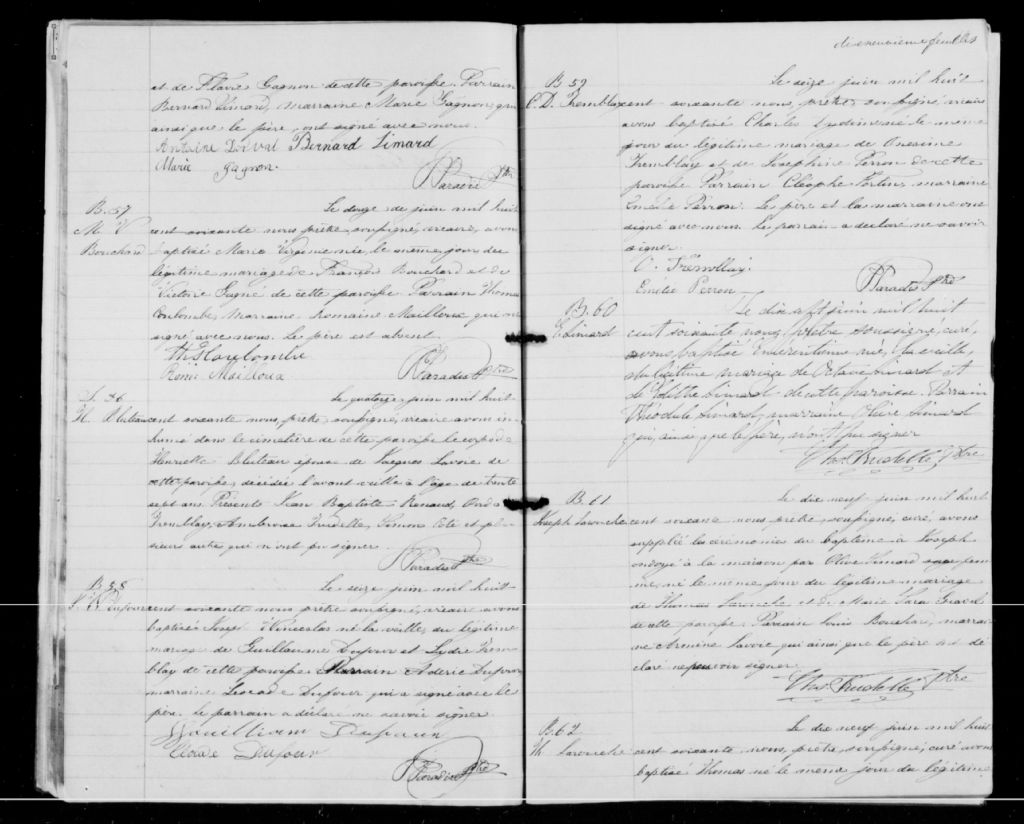 et de Flavie Gagnon de cette paroisse. Parrain
Bernard Simard, marraine Marie Gagnon, qui
ainsi que le père, ont signé avec nous.
Antoine Dorval Bernard Simard
Marie Gagnon.
Paradis Ptre
B. 57
M. V.
Bouchard
Le douze de juin mil huit
cent soixante nous prêtre, soussigné, vicaire, avons
baptisé Marie Virginie née le même jour du
légitime mariage de François Bouchard et de
Victorie Gagné de cette paroisse. Parrain Thomas
Coulombe, marraine Romaine Mailloux qui ont
signé avec nous. Le père est absent.
Ths Coulombe
Rom: Mailloux
Paradis Ptre
S. 36
H. Bluteau
Le quatorze juin mil huit
cent soixante nous, prêtre, soussigné, vicaire avons in-
humé dans le cimetière de cette paroisse le corps de
Henriette Bluteau épouse de Jacques Lavoie de
cette paroisse, décédée l'avant veille à l'âge de trente
sept ans. Présents Jean Baptiste Renaud,
Tremblay, Ambroise Trudelle, Simon Coté et plu-
sieurs autres qui n'ont pu signer.
Paradis Ptre
B. 58
Dufour
Le seize juin mil huit
cent soixante nous prêtre soussigné, vicaire avons
baptisé Joseph Vinceslas né la veille, du légitime
mariage de Guillaume Dufour et Lydie Trem-
blay de cette paroisse Parrain Dufour
marraine Léocade Dufour qui a signé avec le
père. le parrain a déclaré ne savoir signer.
Dufour
Dufour
Paradis Ptre
dixneuvieme feuillet
B. 59
C. D. Tremblay
Le seize juin mil huit
cent soixante nous, prêtre, soussigné, vicaire
avons baptisé Charles né le même
jour du légitime mariage de Onésime
Tremblay et de Joséphine Perron de cette
paroisse Parrain Cléophe Fortin, marraine
Emélie Perron. Le père et la marraine ont
signé avec nous. le parrain a déclaré ne savoir
signer.
O. Tremblay.
Emilie Perron
Paradis Ptre
B. 60
E. Simard
Le dix sept juin mil huit
cent soixante nous, prêtre soussigné, curé,
avons baptisé Emérentienne née, la veille,
du légitime mariage de Octave Simard et
de Edithe Simard de cette paroisse. Parrain
Théodule Simard, marraine Olive Simard
qui, ainsi que le père, n'ont pu signer
Ths Trudelle, Ptre
B. 61
Joseph Larouche
Le dix neuf juin mil huit
cent soixante nous, prêtre, soussigné, curé, avons
supplié les cérémonies du baptême à Joseph
ondoyé à la maison par Olive Simard sage fem-
me, né le même jour du légitime mariage
de Thomas Larouche et de Marie Sara Gravel
de cette paroisse. Parrain Louis Bouchard, marrai-
ne Armine Lavoie qui ainsi que le père ont dé-
claré ne pouvoir signer
Ths Trudelle Ptre
B. 62
Th. Larouche
Le dix neuf juin mil huit
cent soixante, nous, prêtre, soussigné, curé avons
baptisé Thomas né le même jour du légitime